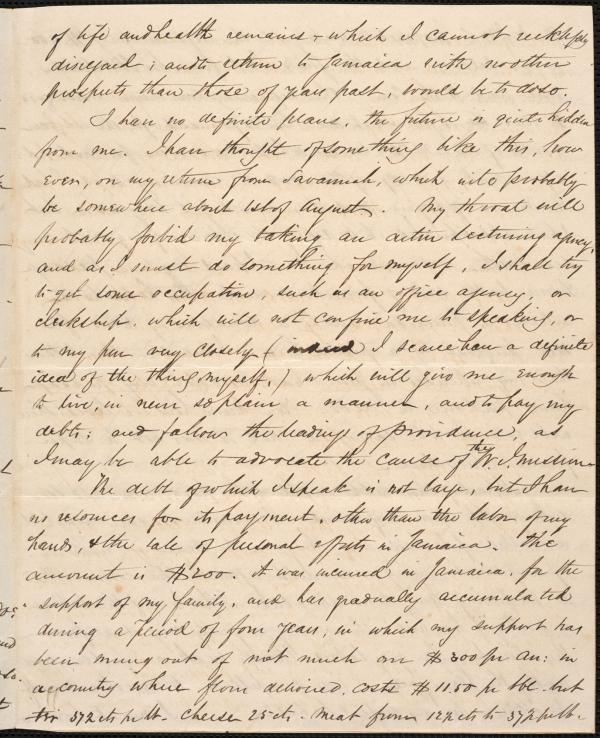 of life and health remains & which I cannot recklessly
disregard; and to return to Jamaica with no other
prospects than those of years past, would be to do so.
I have no definite plans, the future is quite hidden
from me. I have thought of something like this, how
ever, on my return from Savannah, which will probably
be somewhere about 1st of August. My throat will
probably forbid my taking an active Lecturing agency,
and as I must do something for myself, I shall try
to get some occupation, such as an office agency, or
clerkship, which will not confine me to speaking, or
to my pen very closely ( I scarce have a definite
idea of the thing myself,) which will give me enough
to live, in never so plain a manner, and to pay my
debts; and follow the leadings of providence, as
I may be able to advocate the cause of the W. I. mission
The debt of which I speak is not large, but I have
no resources for its payment, other than the labor of my
hands, & the sale of personal effects in Jamaica. The
amount is $200. it was incurred in Jamaica, for the
support of my family, and has gradually accumulated
during a period of four years, in which my support has
been out of not much over $300 pr an: in
a country where flour delivered, costs $11.50 pr bbl. but
37½ cts pr lb. cheese 25 cts. meat from 12½ cts to 37½ pr lb.